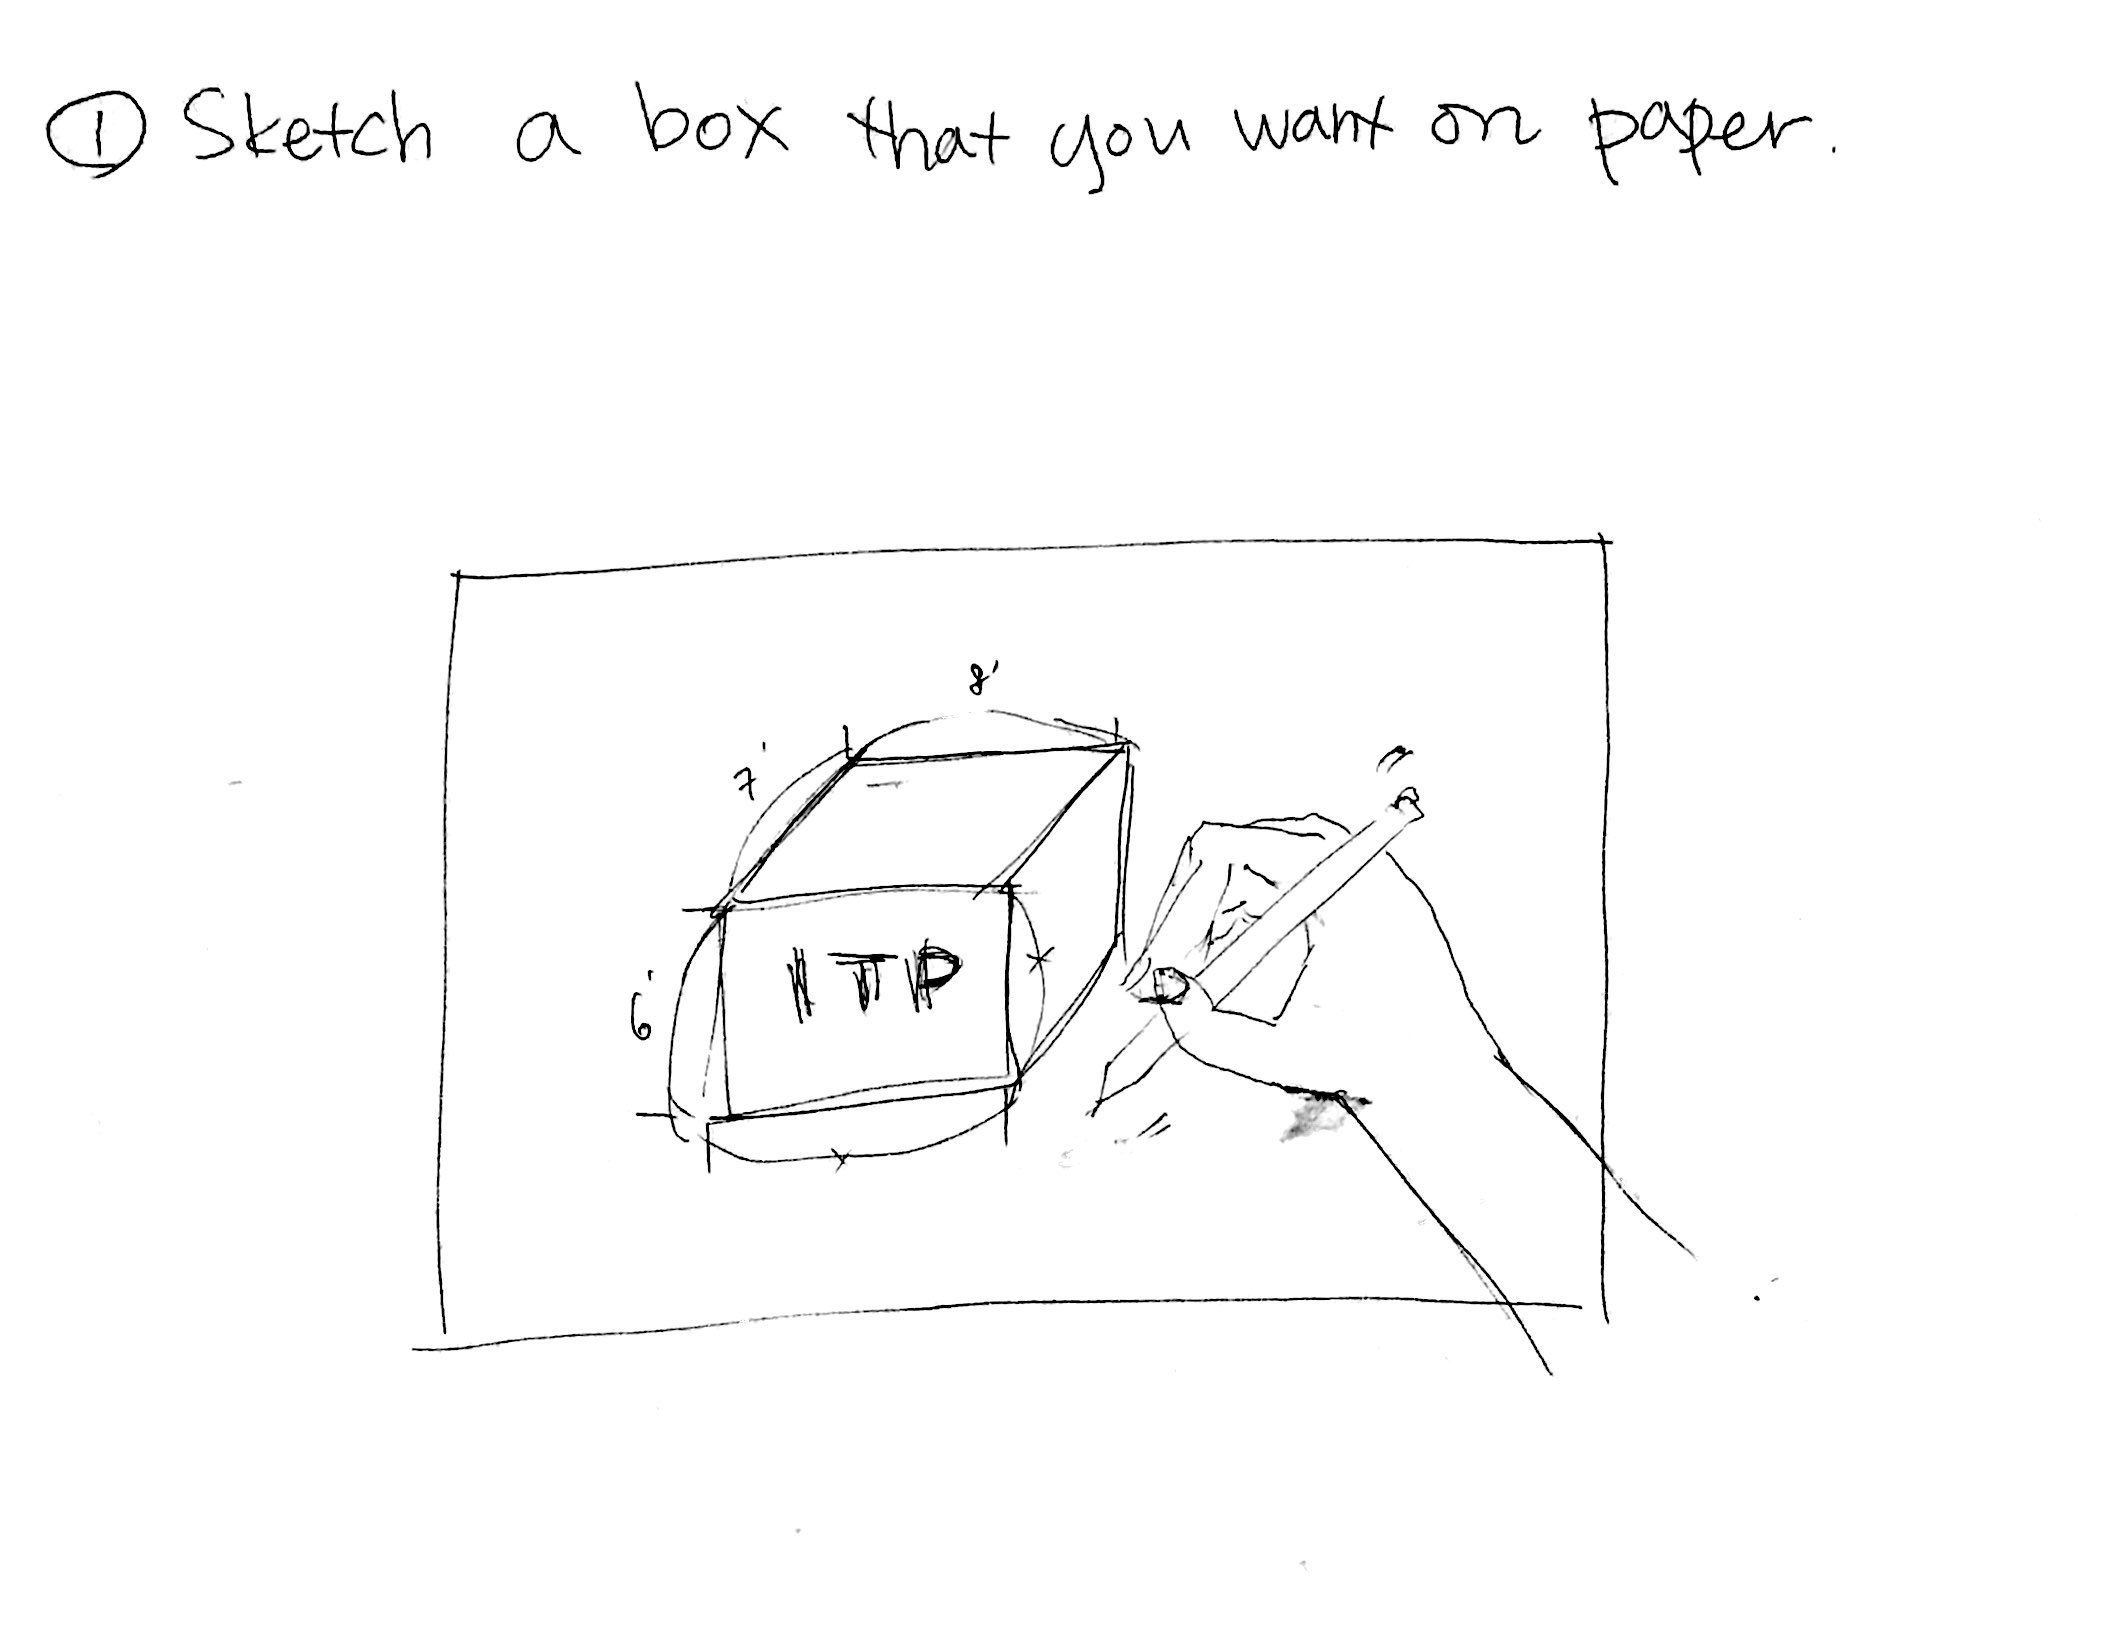 ① Sketch a box that you want on paper.
8'
7'
ITP
6'